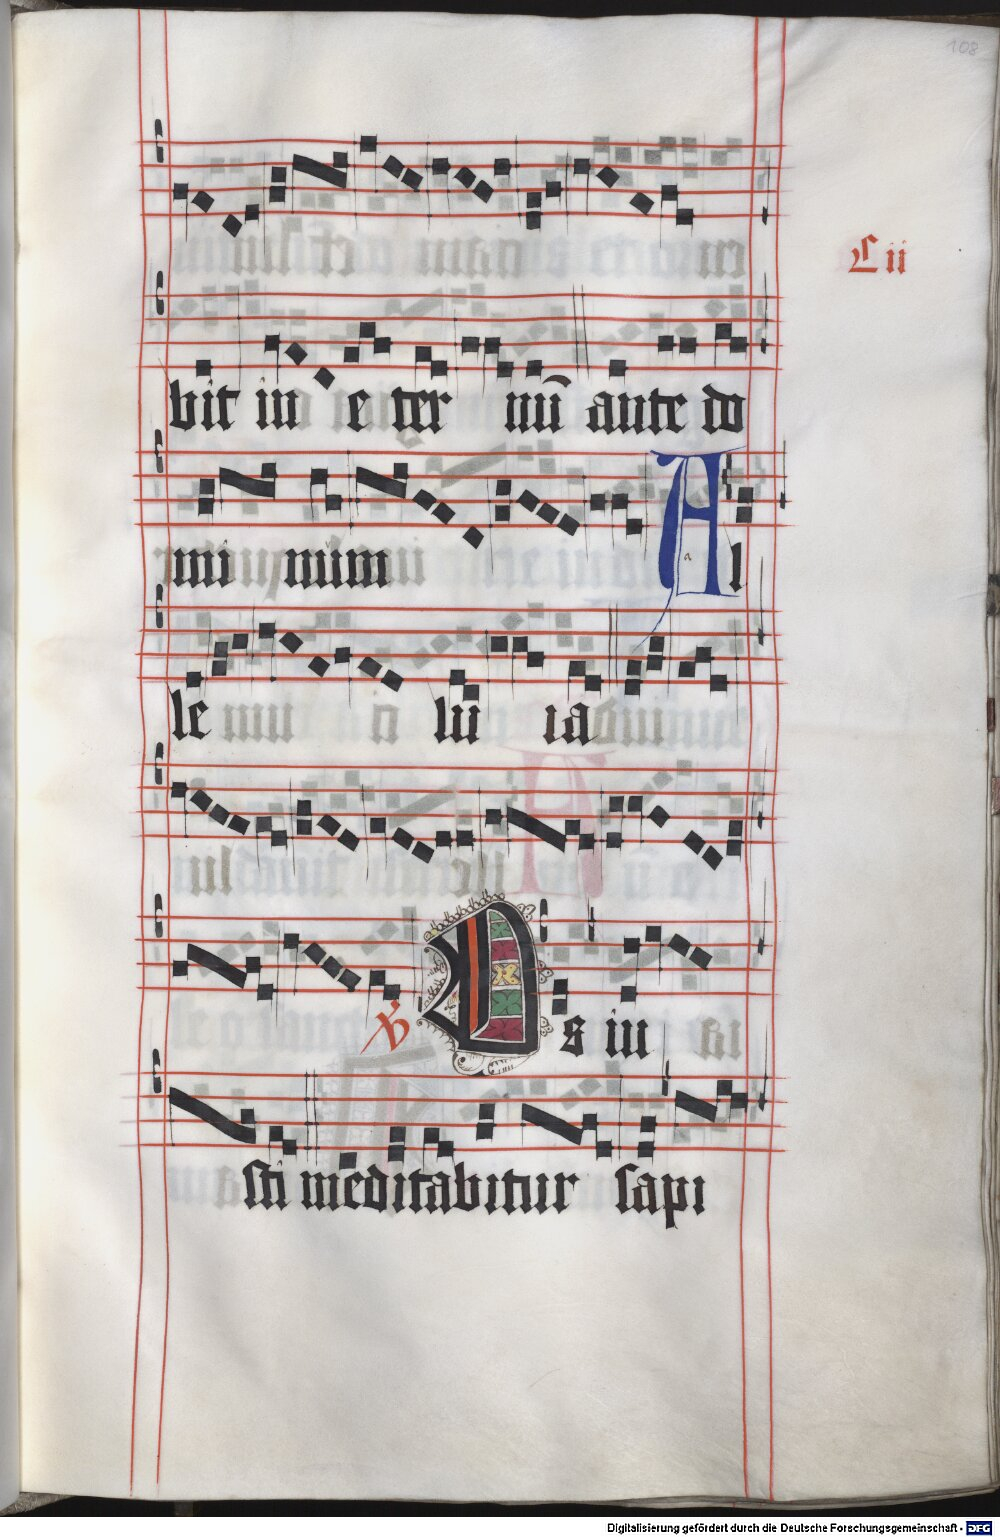 108
Lii
bit in e ter nū ante do
mi num A l
le lu ia
℣ Os iu
sti meditabitur sapi
Digitalisierung gefördert durch die Deutsche Forschungsgemeinschaft - DFG